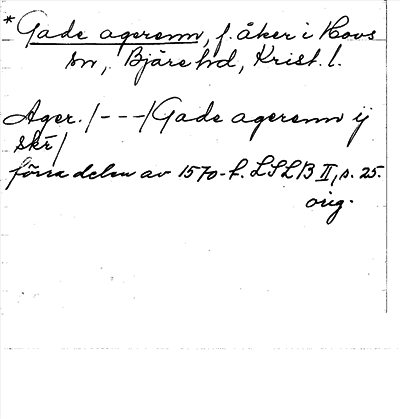 * Gade agerenn, f. åker i Hovs
sn, Bjäre hd, Krist. l.
Ager. /---/ Gade agerenn ij
skr/
förra delen av 1570-t. LSLB II, s. 25.
orig.